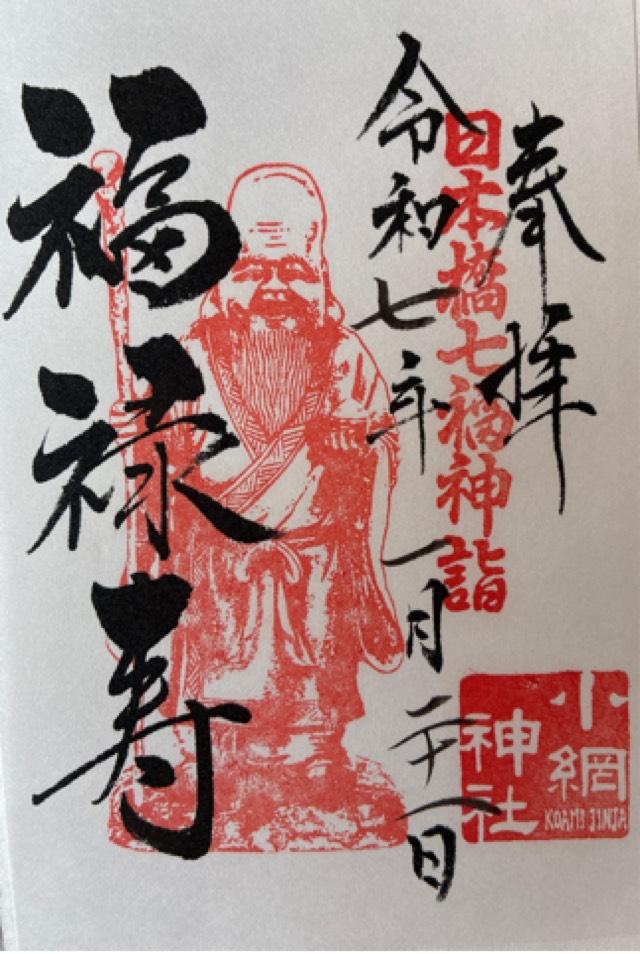 奉拝
日本橋七福神詣
令和七年一月二十八日
福禄寿
小網
神社
KOAMI JINJA